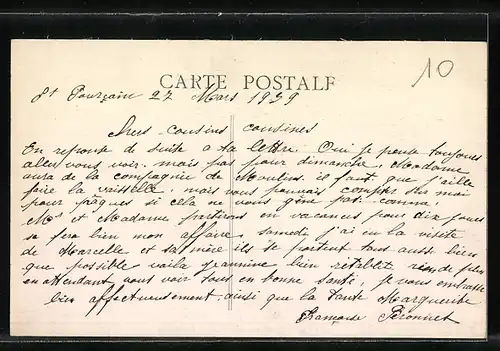 10
CARTE POSTALE
St Pourçain 27 Mars 1939
Chers cousins cousines
En reponse de suite a ta lettre. Oui je pense toujours
aller vous voir. mais pas pour dimanche, Madame
aura de la compagnie de Moulins. il faut que j'aille
faire la vaisselle, mais vous pouvais compter sur moi
pour pâques si cela ne vous gêne pas. comme
Mr et Madame partirons en vacances pour dix jours
sa fera bien mon affaire, samedi j'ai eu la visite
de Marcelle et sa mère ils se portent tous aussi bien
que possible voila bien retablite plus
en attendant vous voir tous en bonne santé, je vous embrasse
bien affectueusement. ainsi que la tante Marguerite
Françoise Peronnet